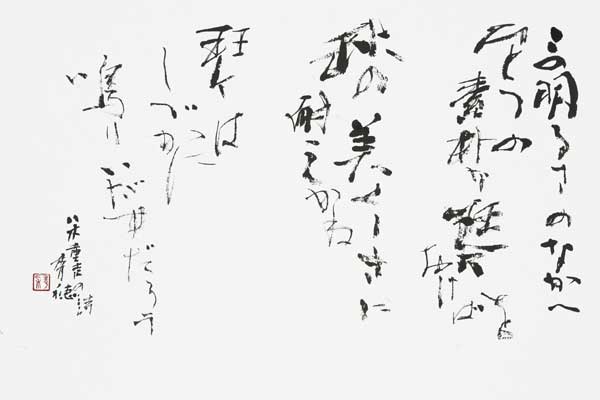 この明るさのなかへ
ひとつの
素朴な琴を
おけば
秋の美しさに
耐えかね
琴は
しづかに
鳴りいだすだろう
八木重吉の詩